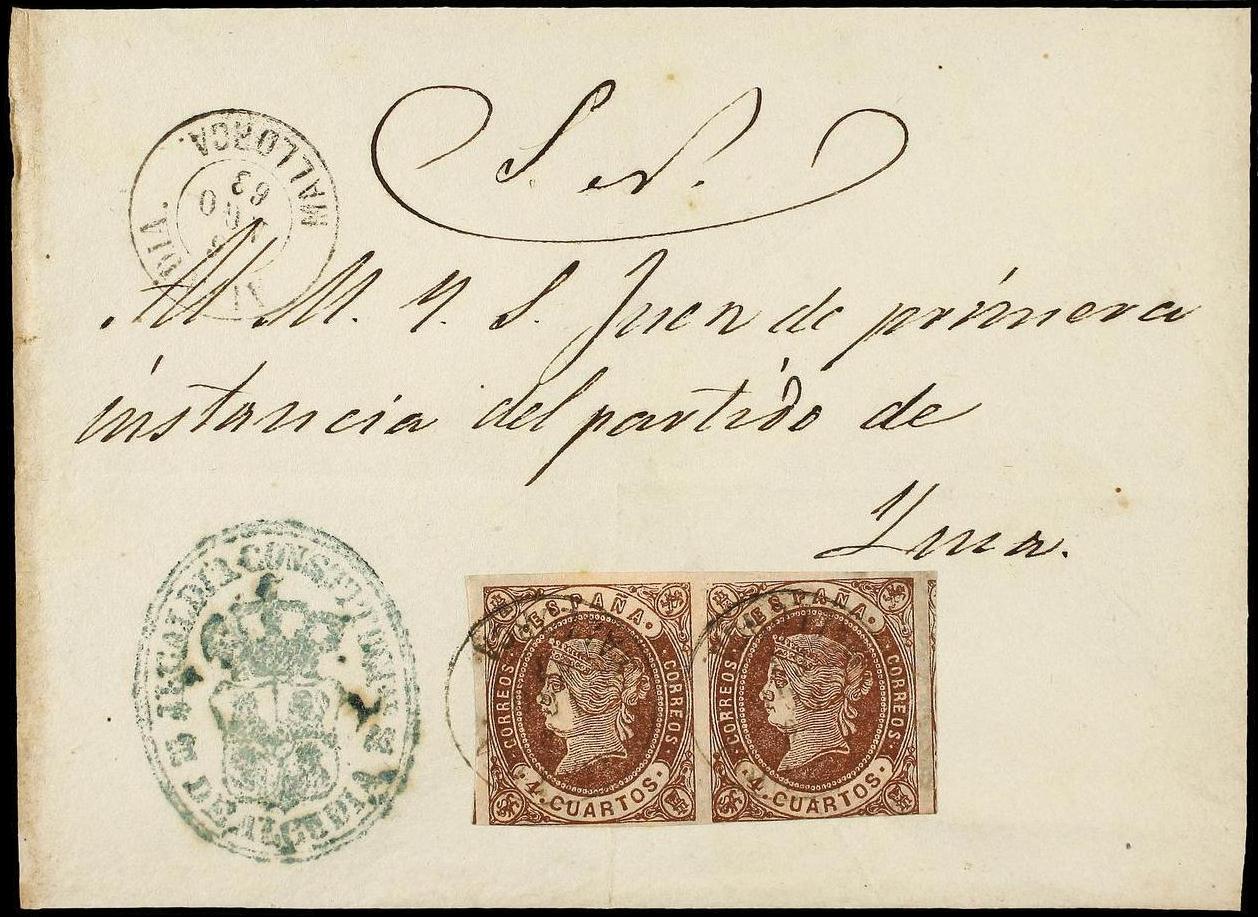 MALLORCA.
63
S er.
Al M. Y. S. Juez de primera
instancia del partido de
Ynca.
ALCALDIA CONSTITUCIONAL
DE ALCUDIA
ESPAÑA.
CORREOS
CORREOS
4. CUARTOS
ESPAÑA.
CORREOS
CORREOS
4. CUARTOS